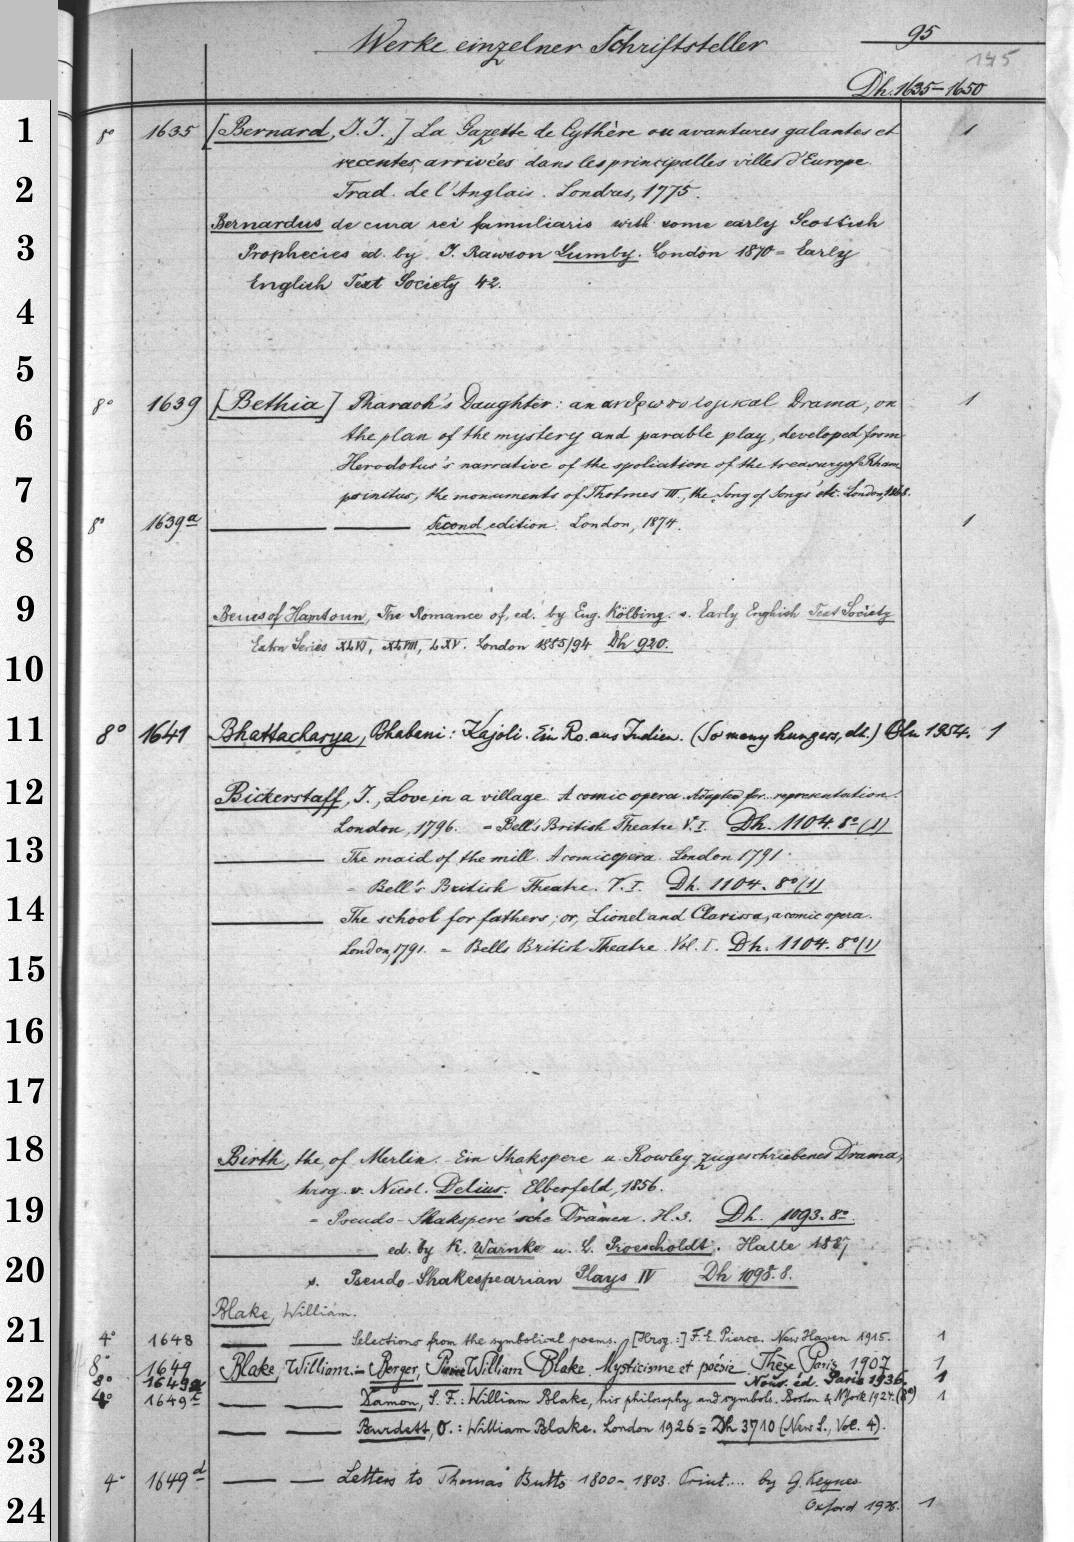 Werke einzelner Schriftsteller
95
Dh. 1635-1650
1
2
3
4
5
6
7
8
9
10
11
12
13
14
15
16
17
18
19
20
21
22
23
24
8° 1635 [Bernard, J. J.,] La Gazette de Cythère ou avantures galantes et 1
recentes, arrivées dans les principalles villes d'Europe.
Trad. de l'Anglais. Londres, 1775.
Bernardus de cura rei famuliaris with some early Scottish
Prophecies ed. by J. Rawson Lumby. London 1870 = Early
English Text Society 42.
8° 1639 [Bethia] Pharaoh's Daughter: an ανθρωπολογικαl Drama, on 1
the plan of the mystery and parable play, developed from
Herodotus's narrative of the spoliation of the treasury of Rham
psinitus, the monuments of Thotmes III, the Song of Songs etc. London, 1868.
8° 1639a Second edition. London, 1874. 1
Beues of Hamtoun, The Romance of, ed. by Eug. Kölbing. s. Early English Text Society
Extra Series XLVI, XLVIII, LXV. London 1885/94 Dh 920.
8° 1641 Bhattacharya, Bhabani: Kajoli. Ein Ro. aus Indien. (So many hungers, dt.) Bln 1954. 1
Bickerstaff, I., Love in a village. A comic opera. Adapted for representation.
London, 1796. = Bell's British Theatre V. I. Dh. 1104. 8° (1)
The maid of the mill. A comic opera. London 1791.
= Bell's British Theatre. V. I. Dh. 1104. 8° (1)
The school for fathers; or, Lionel and Clarissa, a comic opera.
London, 1791. = Bells British Theatre Vol. I. Dh. 1104. 8° (1)
Birth, the of Merlin. Ein Shakspere u. Rowley zugeschriebenes Drama,
hrsg. v. Nicol. Delius. Elberfeld, 1856.
= Pseudo-Shakspere'sche Dramen. H. 3. Dh. 1093. 8°
ed. by K. Warnke u. L. Proescholdt. Halle 1887
s. Pseudo-Shakespearian Plays IV Dh 1098. 8.
Blake, William.
4° 1648 Selections from the symbolical poems. [Hrsg.:] F. E. Pierce. New Haven 1915. 1
8° 1649 Blake, William. - Berger, William Blake. Mysticisme et poésie. Thèse Paris 1907 1
8° 1649a Nouv. éd. Paris 1936. 1
4° 1649 Damon, S. F.: William Blake, his philosophy and symbols. Boston & N York 1924. (8°) 1
Burdett, O.: William Blake. London 1926 = Dh 3710 (New S., Vol. 4).
4° 1649d Letters to Thomas Butts 1800-1803. Print.... by G. Keynes
Oxford 1926. 1